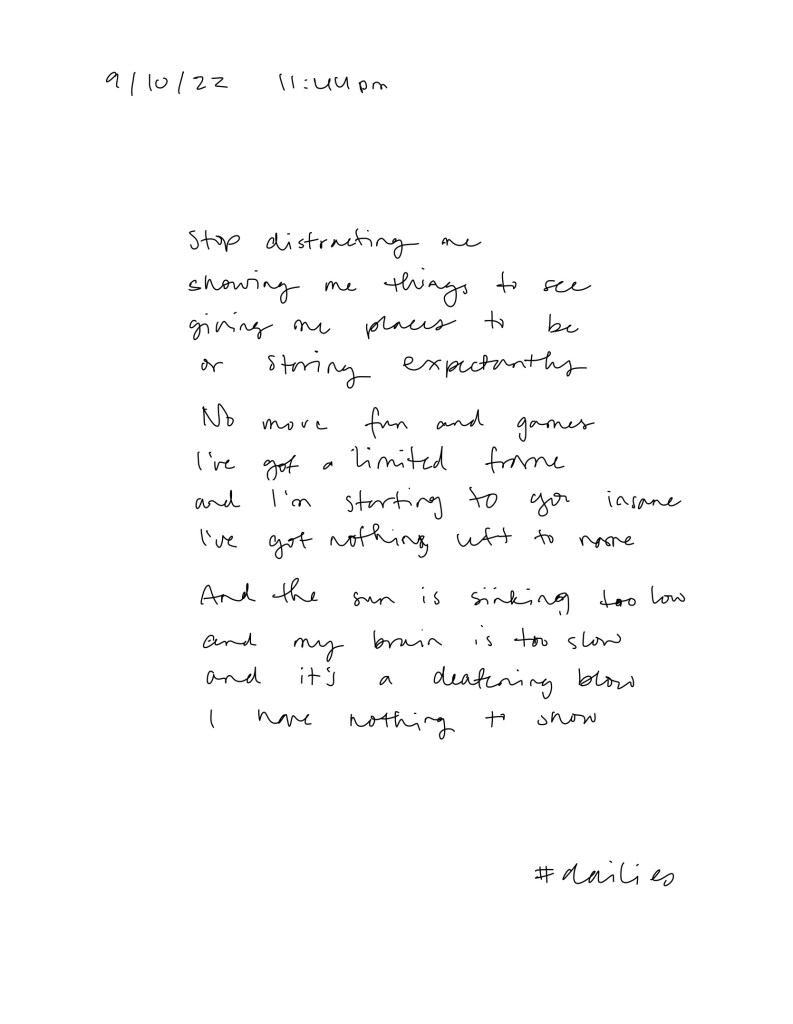 9/10/22 11:44pm
Stop distracting me
showing me things to see
giving me places to be
or staring expectantly
No more fun and games
I've got a limited frame
and I'm starting to go insane
I've got nothing left to name
And the sun is sinking too low
and my brain is too slow
and it's a deafening blow
I have nothing to show
#dailies